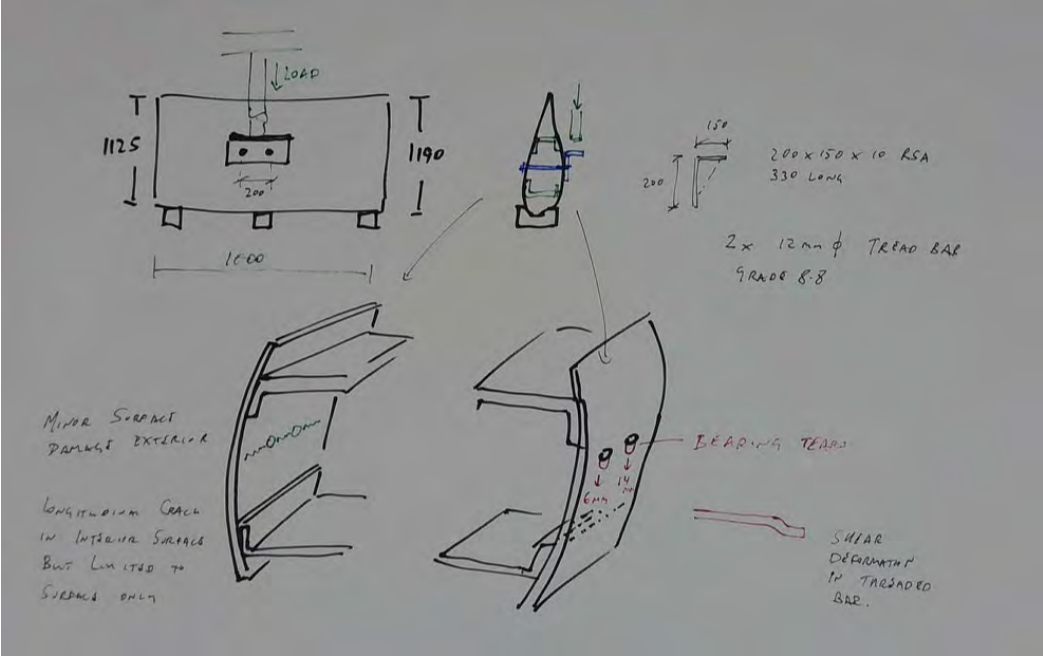 LOAD
1125
1190
200
1600
150
200
200 x 150 x 10 RSA
330 LONG
2 x 12mm ϕ TREAD BAR
GRADE 8.8
MINOR SURFACE
DAMAGE EXTERIOR
LONGITUDINAL CRACK
IN INTERIOR SURFACE
BUT LIMITED TO
SURFACE ONLY
BEARING TEARS
6mm
14
mm
SHEAR
DEFORMATION
IN THREADED
BAR.